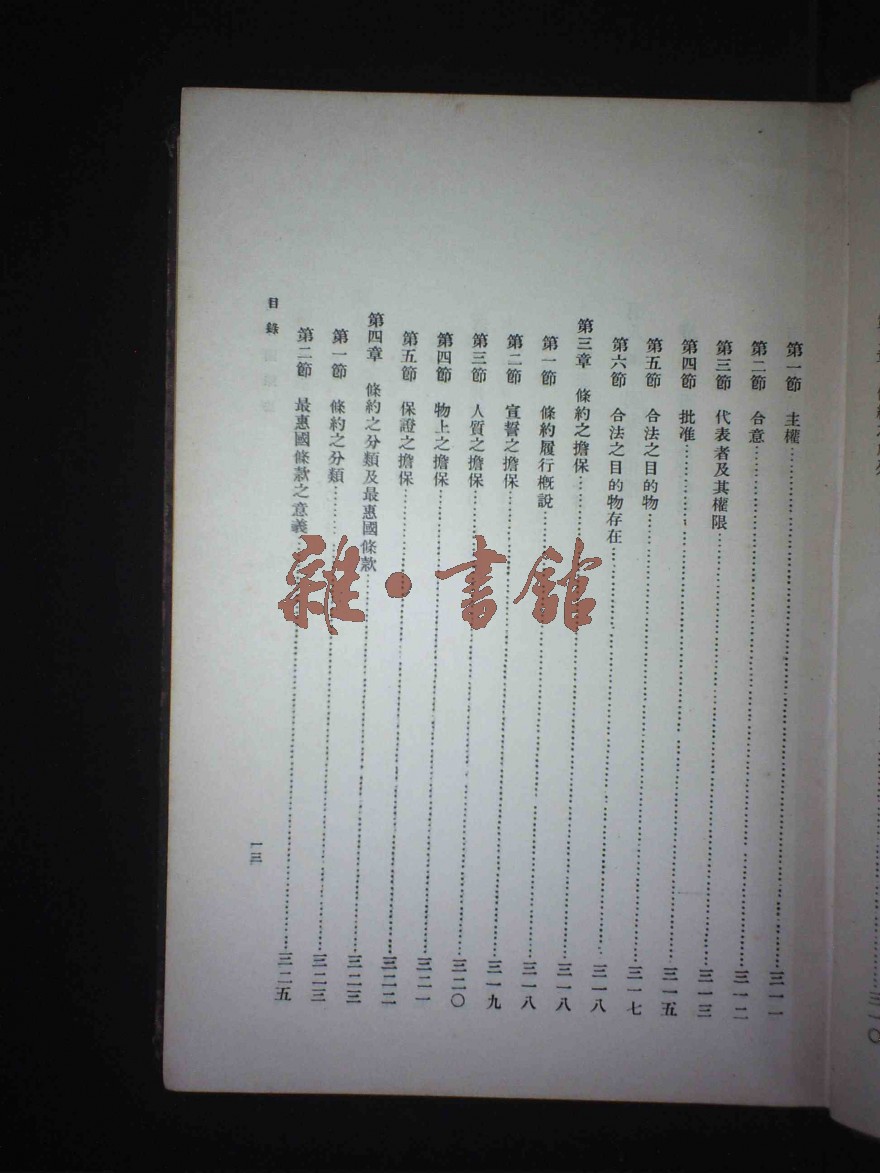 第一節 主權……三一一
第二節 合意……三一二
第三節 代表者及其權限……三一三
第四節 批准……三一五
第五節 合法之目的物……三一七
第六節 合法之目的物存在……三一八
第三章 條約之擔保……三一八
第一節 條約履行概說……三一八
第二節 宣誓之擔保……三一九
第三節 人質之擔保……三二〇
第四節 物上之擔保……三二一
第五節 保證之擔保……三二二
第四章 條約之分類及最惠國條款……三二三
第一節 條約之分類……三二三
第二節 最惠國條款之意義……三二五
目錄
一三
雜·書館